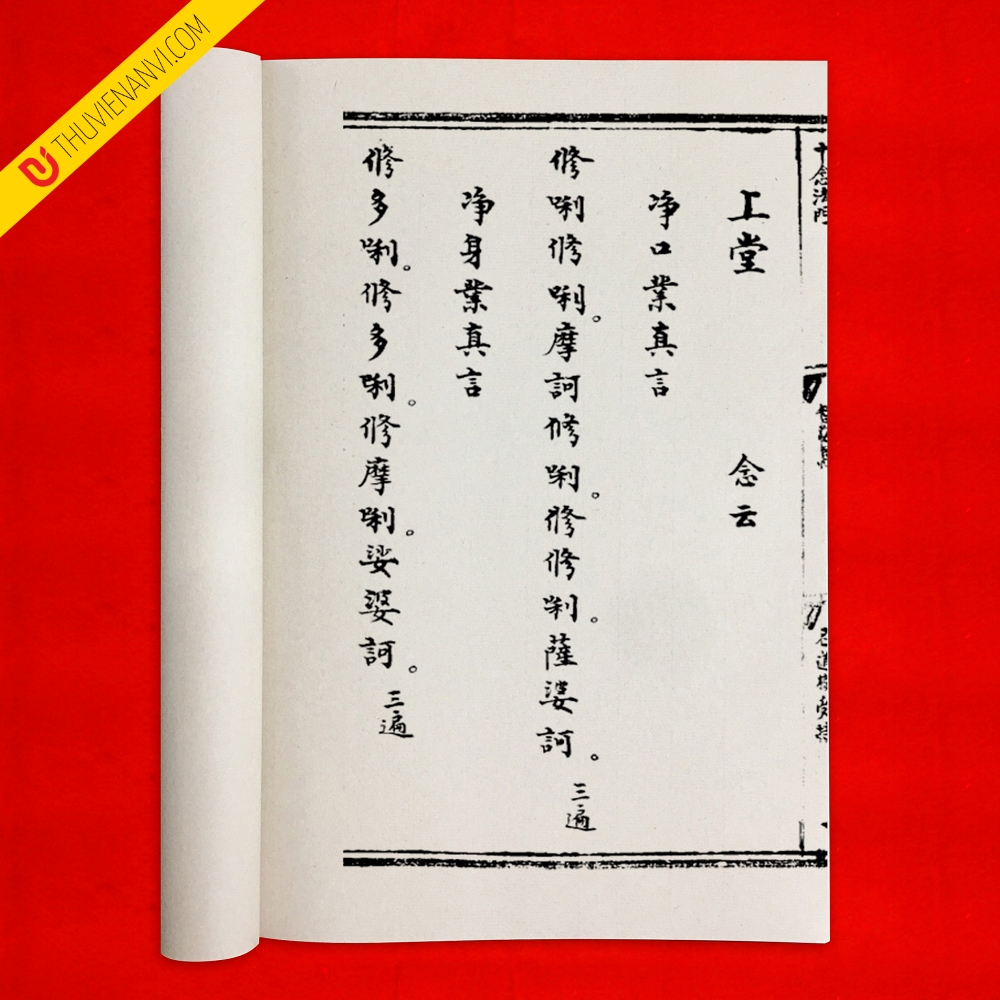 THUVIENANVI.COM
十念法門
上堂 念云
净口業真言
修唎修唎。摩訶修唎。修修唎。薩婆訶。三遍
净身業真言
修多唎。修多唎。修摩唎。娑婆訶。三遍